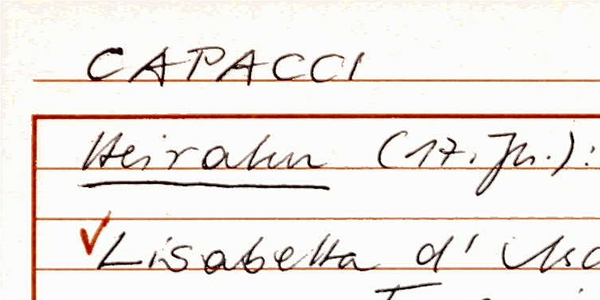 CAPACCI
Heiraten (17. Jh.):
Lisabetta d'